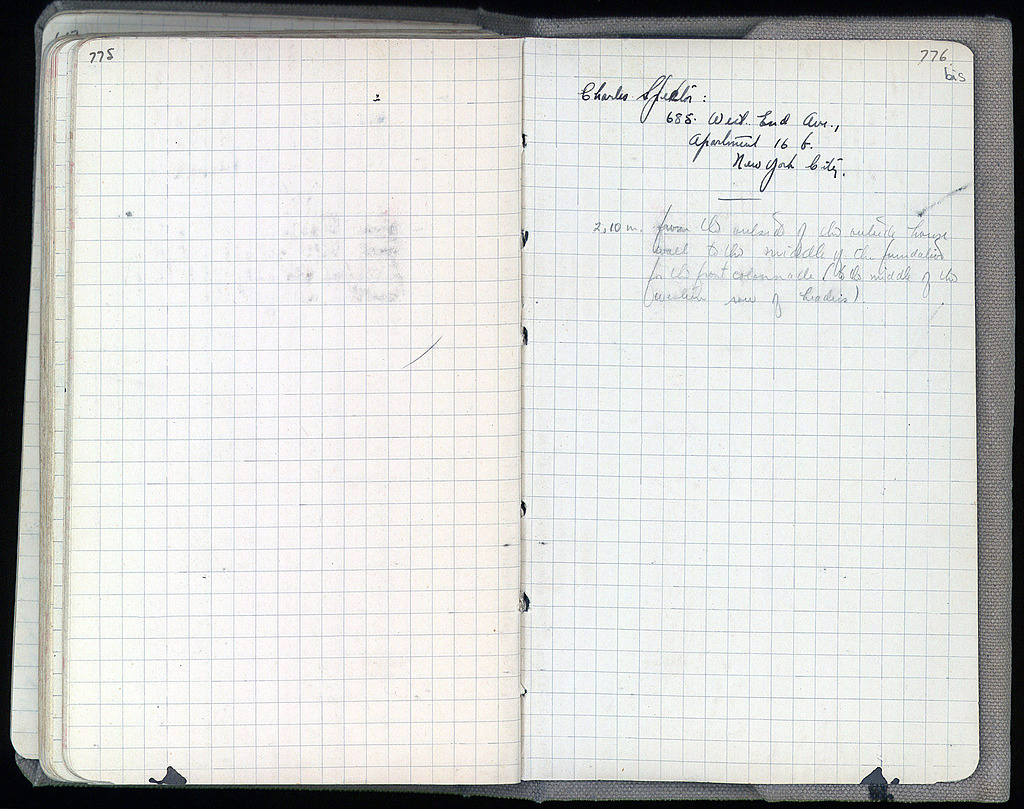 775
776
bis
Charles Spector:
685. West End Ave.,
Apartment 16 b.
New York City.
2,10 m. from the outside of the outside house
wall to the middle of the foundation
for the front colonnade (to the middle of the
row of headers)